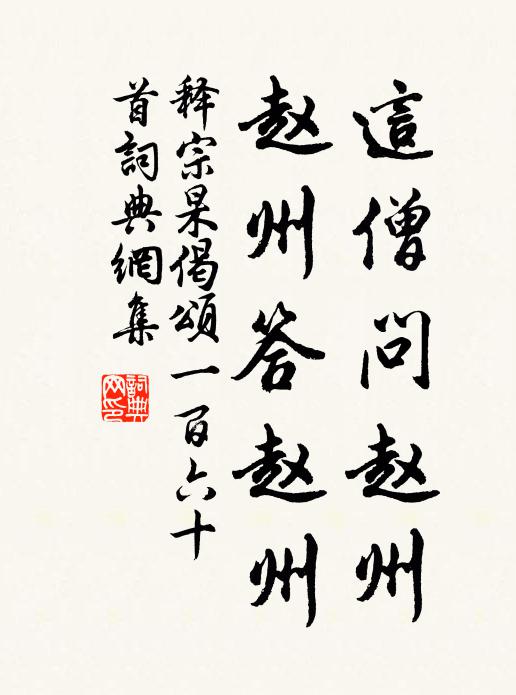 這僧問赵州
赵州答赵州
释宗杲偈頌一百六十
首詞典網集
詞典网印